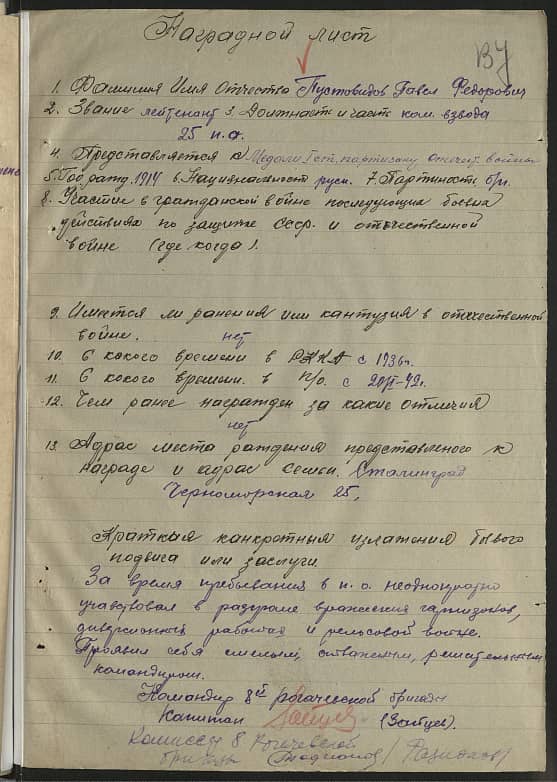 Наградной лист
ВУ
1. Фамилия Имя Отчество Пустовидов Павел Федорович
2. Звание лейтенант 3. Должность и часть ком. взвода
25 п.о.
4. Представляется к Медали I ст. партизану отечест. войны
5. Год рожд. 1914 6. Национальност русск. 7. Партиность б/п.
8. Участие в гражданской войне последующих боевых
действиях по защите СССР. и отечественной
войне (где когда).
9. Имеется ли ранения или кантузия в отечественной
войне. нет
10. С какого времени в РККА с 1936г.
11. С кокого времени. в п/о. с
12. Чем ранее награжден за какие отличия
нет
13. Адрас места раждения, представленого к
награде и адрас семьи. Сталинград
Черноморская 25.
Краткия канкротныя излажения боевого
подвиса или заслуги.
За время пребывания в п. о. неоднократно
учавствовал в разгроме вражеских гарнизонов,
диверсионных работах и рельсовой войне.
Проявил себя смелым, отважным, решительным
командиром.
Командир 8й рогачевской бригады
Капитан (Зайцев).
Комиссар 8 Рогачевской
бригады